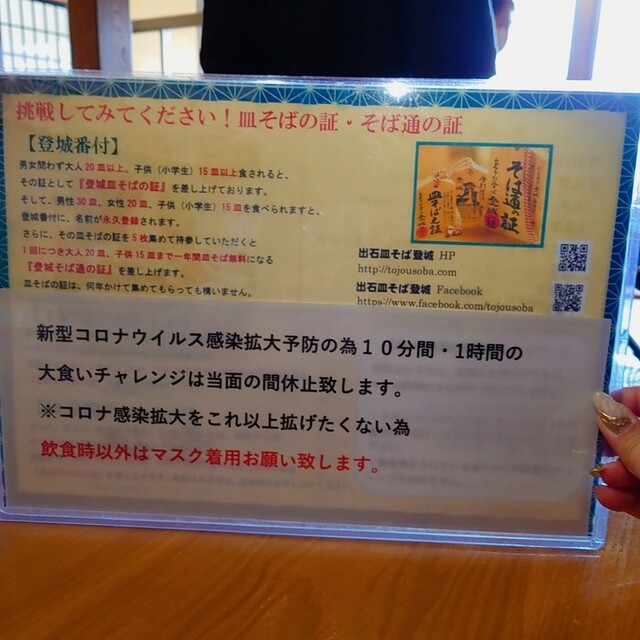 挑戦してみてください！皿そばの証・そば通の証
【登城番付】
男女問わず大人20皿以上、子供（小学生）15皿以上食されると、
その証として『登城皿そばの証』を差し上げております。
そして、男性30皿、女性20皿、子供（小学生）15皿を食べられますと、
登城番付に、名前が永久登録されます。
さらに、その皿そばの証を5枚集めて持参していただくと
1回につき大人20皿、子供15皿まで一年間皿そば無料になる
『登城そば通の証』を差し上げます。
皿そばの証は、何年かけて集めてもらっても構いません。
そば通の証
皿そば之証
出石皿そば登城 HP
http://tojousoba.com
出石皿そば登城 Facebook
https://www.facebook.com/tojousoba
新型コロナウイルス感染拡大予防の為１０分間・1時間の
大食いチャレンジは当面の間休止致します。
※コロナ感染拡大をこれ以上拡げたくない為
飲食時以外はマスク着用お願い致します。